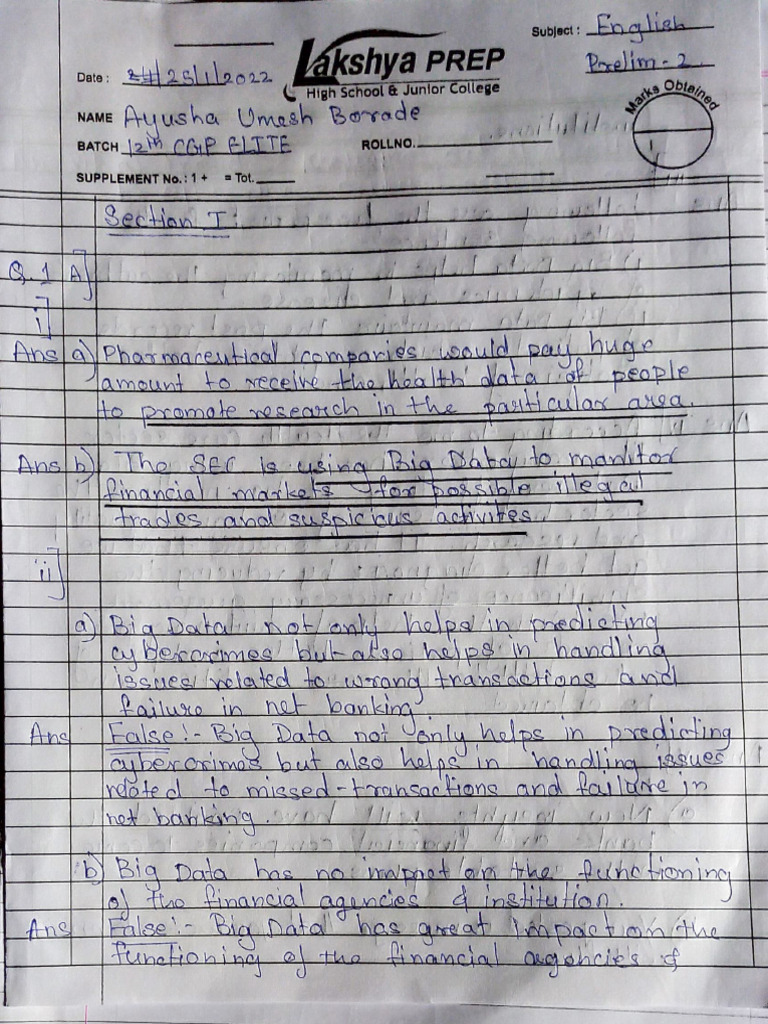 Subject : English
Prelim - 2
Lakshya PREP
High School & Junior College
Date : 25/1/2022
Marks Obtained
NAME Ayusha Umesh Borade
BATCH 12th CGP ELITE ROLLNO.
SUPPLEMENT No. : 1 + = Tot.
Section I :
Q.1 A]
i]
Ans a) Pharmaceutical companies would pay huge
amount to receive the health data of people
to promote research in the particular area.
Ans b) The SEC is using Big Data to monitor
financial markets for possible illegal
trades and suspicious activites.
ii]
a) Big Data not only helps in predicting
cybercrimes but also helps in handling
issues related to wrong transactions and
failure in net banking.
Ans False :- Big Data not only helps in predicting
cybercrimes but also helps in handling issues
related to missed-transactions and failure in
net banking.
b) Big Data has no impact on the functioning
of the financial agencies & institution.
Ans False :- Big Data has great impact on the
functioning of the financial agencies &